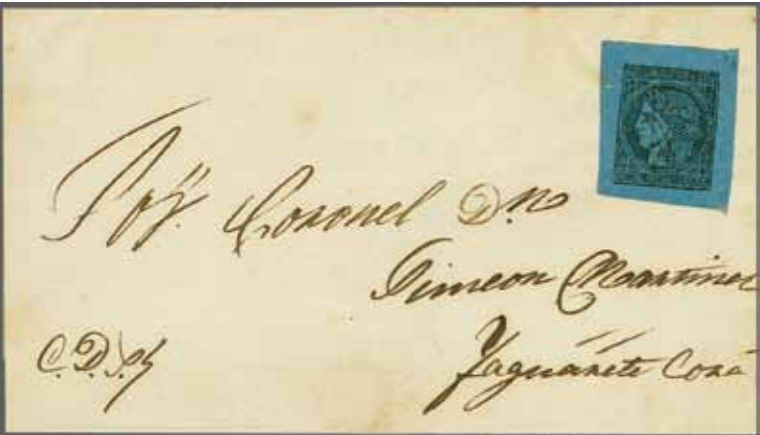 Coronel Dn
Simeon Martinez
Yaguarete Corá
C. D. S.